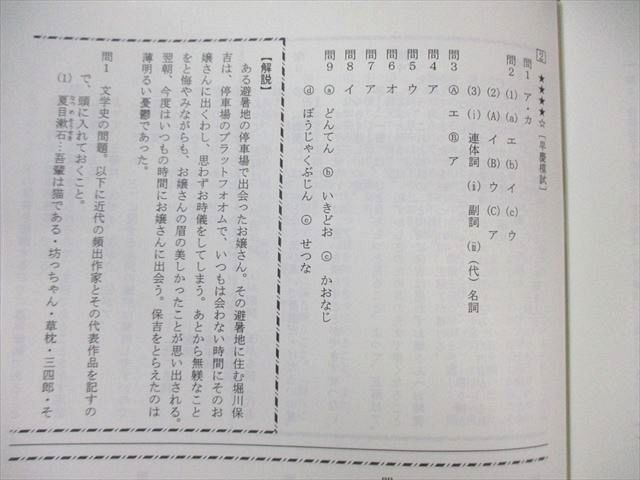 2 ★★★★☆ [早慶模試]
問1 ア・カ
問2 (1) (a) エ (b) イ (c) ウ
(2) (A) イ (B) ウ (C) ア
(3) (ⅰ) 連体詞 (ⅱ) 副詞 (ⅲ) (代)名詞
問3 Ⓐ エ Ⓑ ア
問4 ア
問5 ウ
問6 オ
問7 ア
問8 イ
問9 ⓐ どんてん ⓑ いきどお ⓒ かおなじ
ⓓ ぼうじゃくぶじん ⓔ せつな
【解説】
ある避暑地の停車場で出会ったお嬢さん。その避暑地に住む堀川保
吉は、停車場のプラットフォオムで、いつもは会わない時間にそのお
嬢さんに出くわし、思わずお時儀をしてしまう。あとから無躾なこと
をと悔やみながらも、お嬢さんの眉の美しかったことが思い出される。
翌朝、今度はいつもの時間にお嬢さんに出会う。保吉をとらえたのは
薄明るい憂鬱であった。
問1 文学史の問題。以下に近代の頻出作家とその代表作品を記すの
で、頭に入れておくこと。
(1) 夏目漱石…吾輩は猫である・坊っちゃん・草枕・三四郎・そ